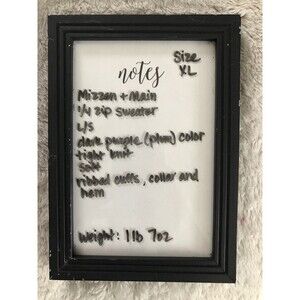 notes
Size
XL
Mizzen + Main
1/4 zip sweater
L/S
dark purple (plum) color
tight knit
Soft
ribbed cuffs, collar and
hem
Weight: 1 lb 7oz